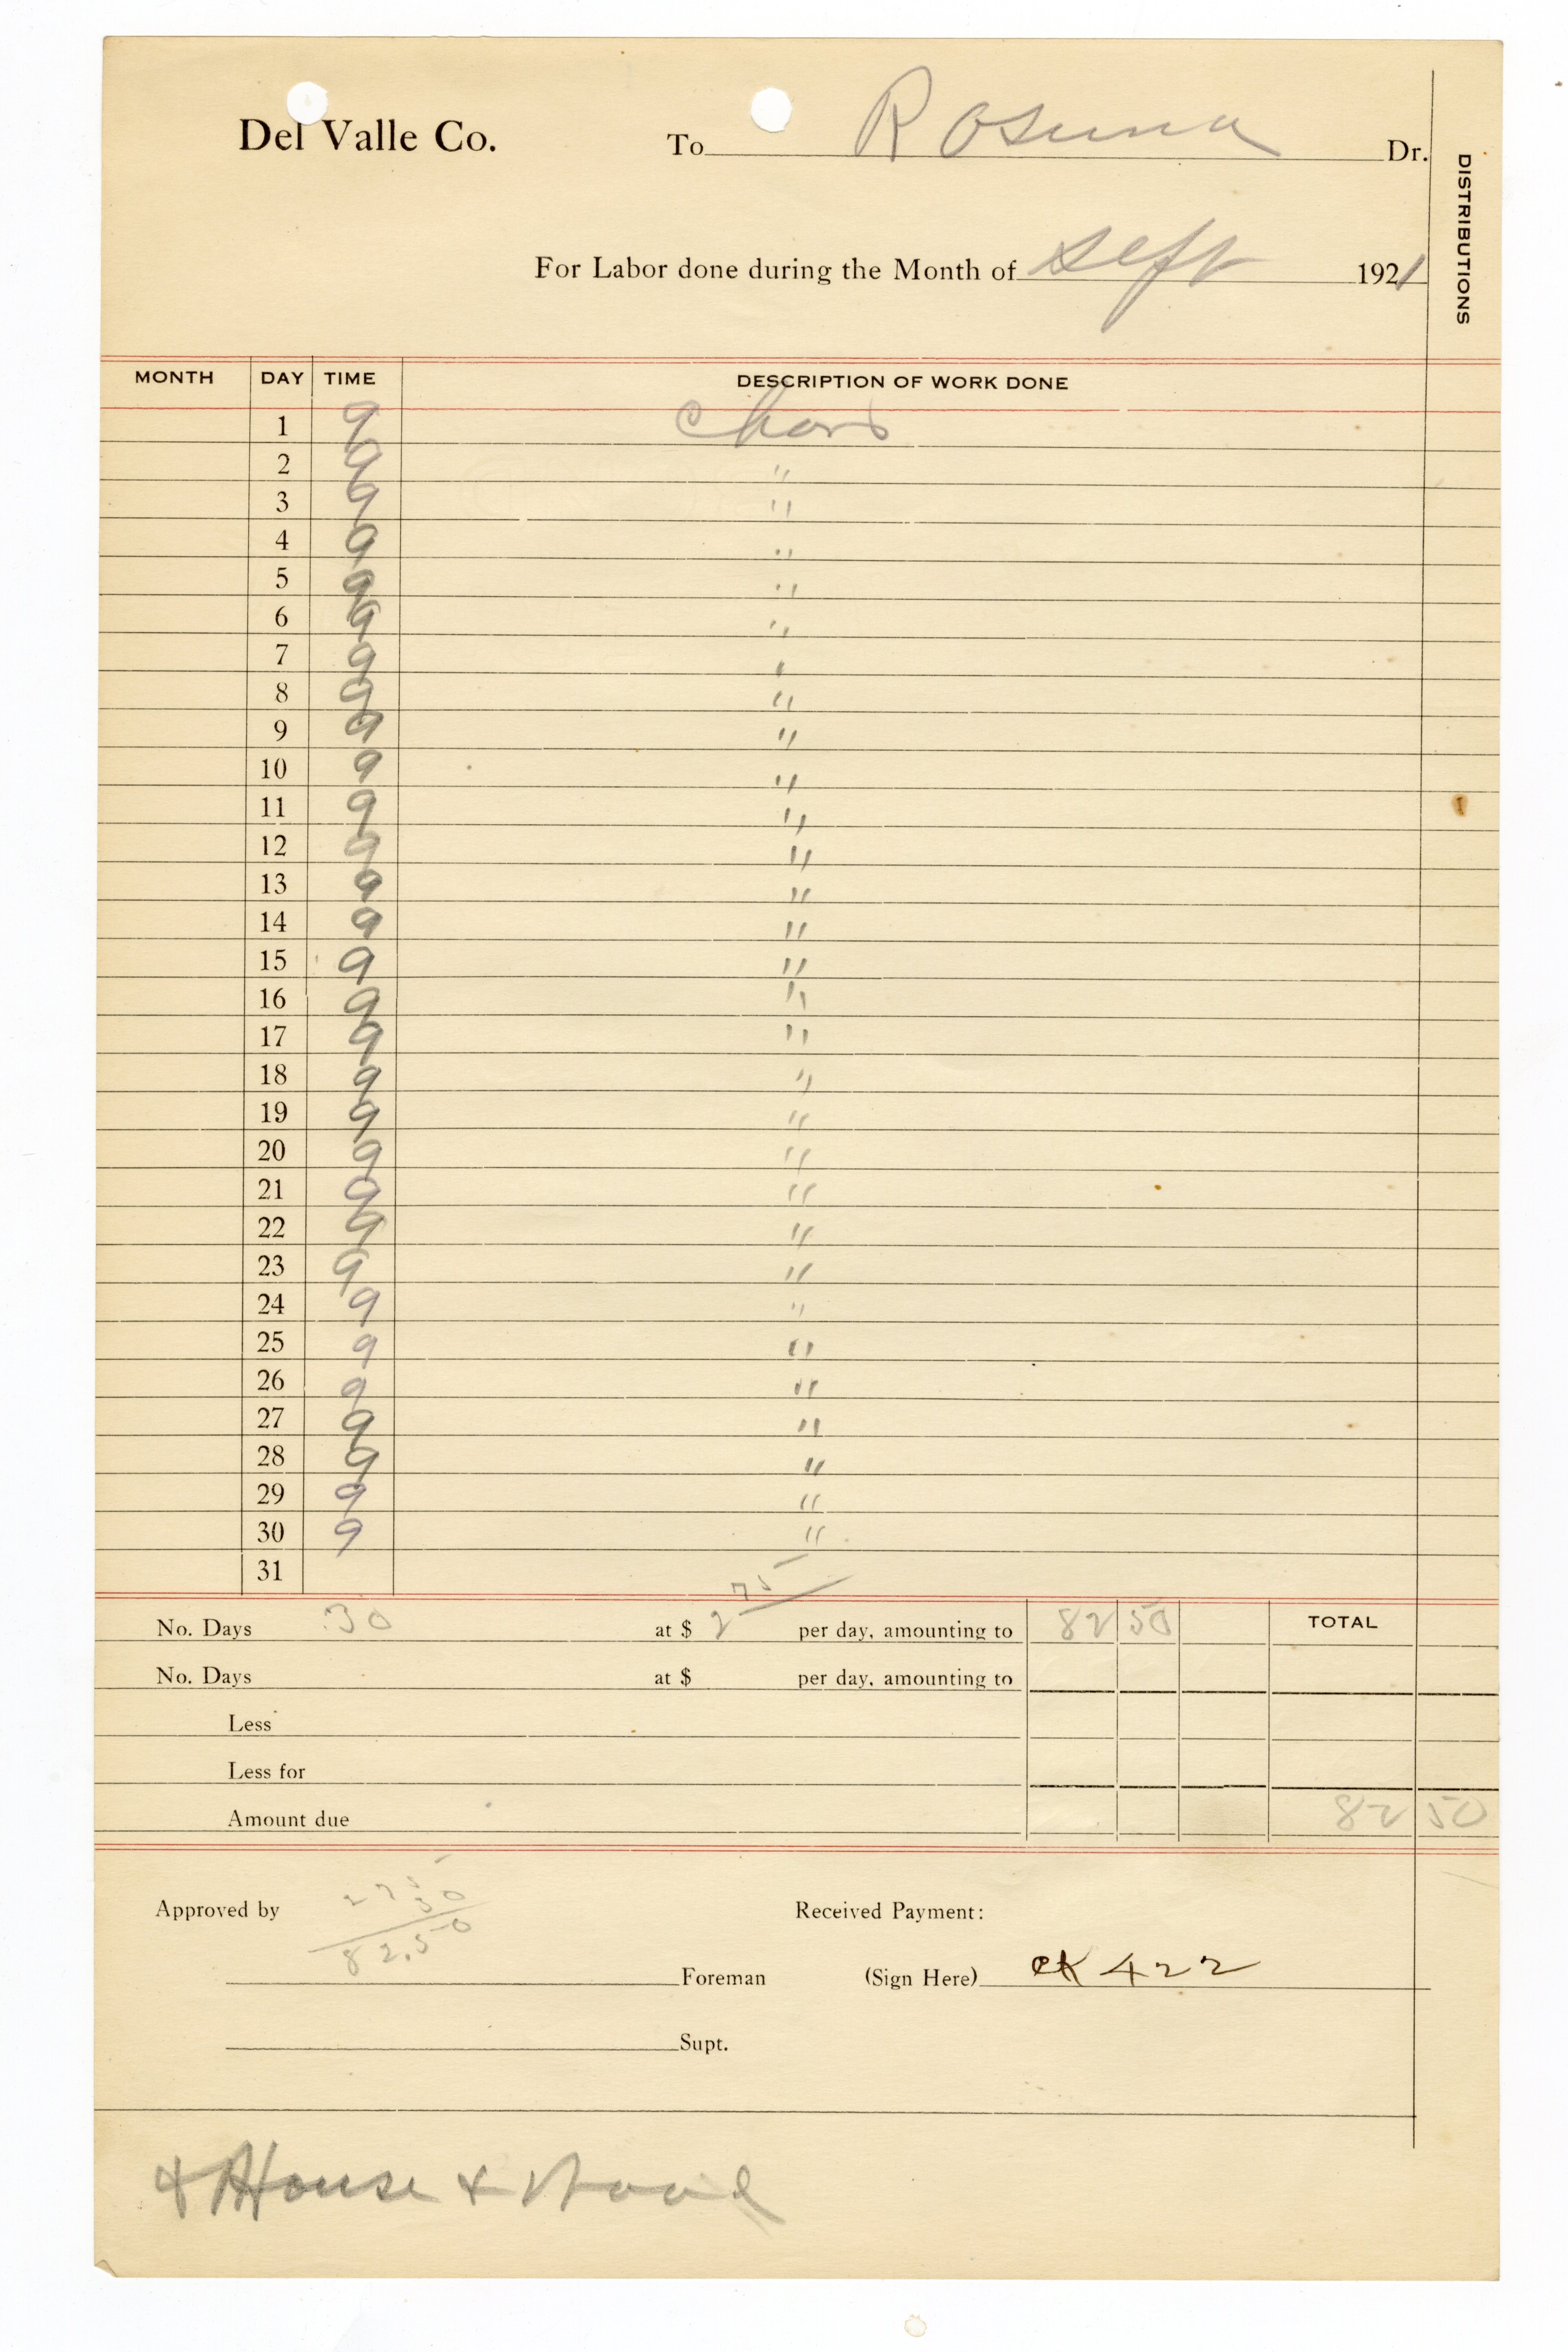 Del Valle Co. To Rosuna Dr.
DISTRIBUTIONS
For Labor done during the Month of Sept 1921
MONTH DAY TIME DESCRIPTION OF WORK DONE
1 9 Chors
2 9 "
3 9 "
4 9 "
5 9 "
6 9 "
7 9 "
8 9 "
9 9 "
10 9 "
11 9 "
12 9 "
13 9 "
14 9 "
15 9 "
16 9 "
17 9 "
18 9 "
19 9 "
20 9 "
21 9 "
22 9 "
23 9 "
24 9 "
25 9 "
26 9 "
27 9 "
28 9 "
29 9 "
30 9 "
31
No. Days 30 at $ 2 75 per day, amounting to 82 50 TOTAL
No. Days at $ per day, amounting to
Less
Less for
Amount due 82 50
Approved by 2 75 Received Payment:
30
82.50
Foreman (Sign Here) CK 422
Supt.
& House & Wood